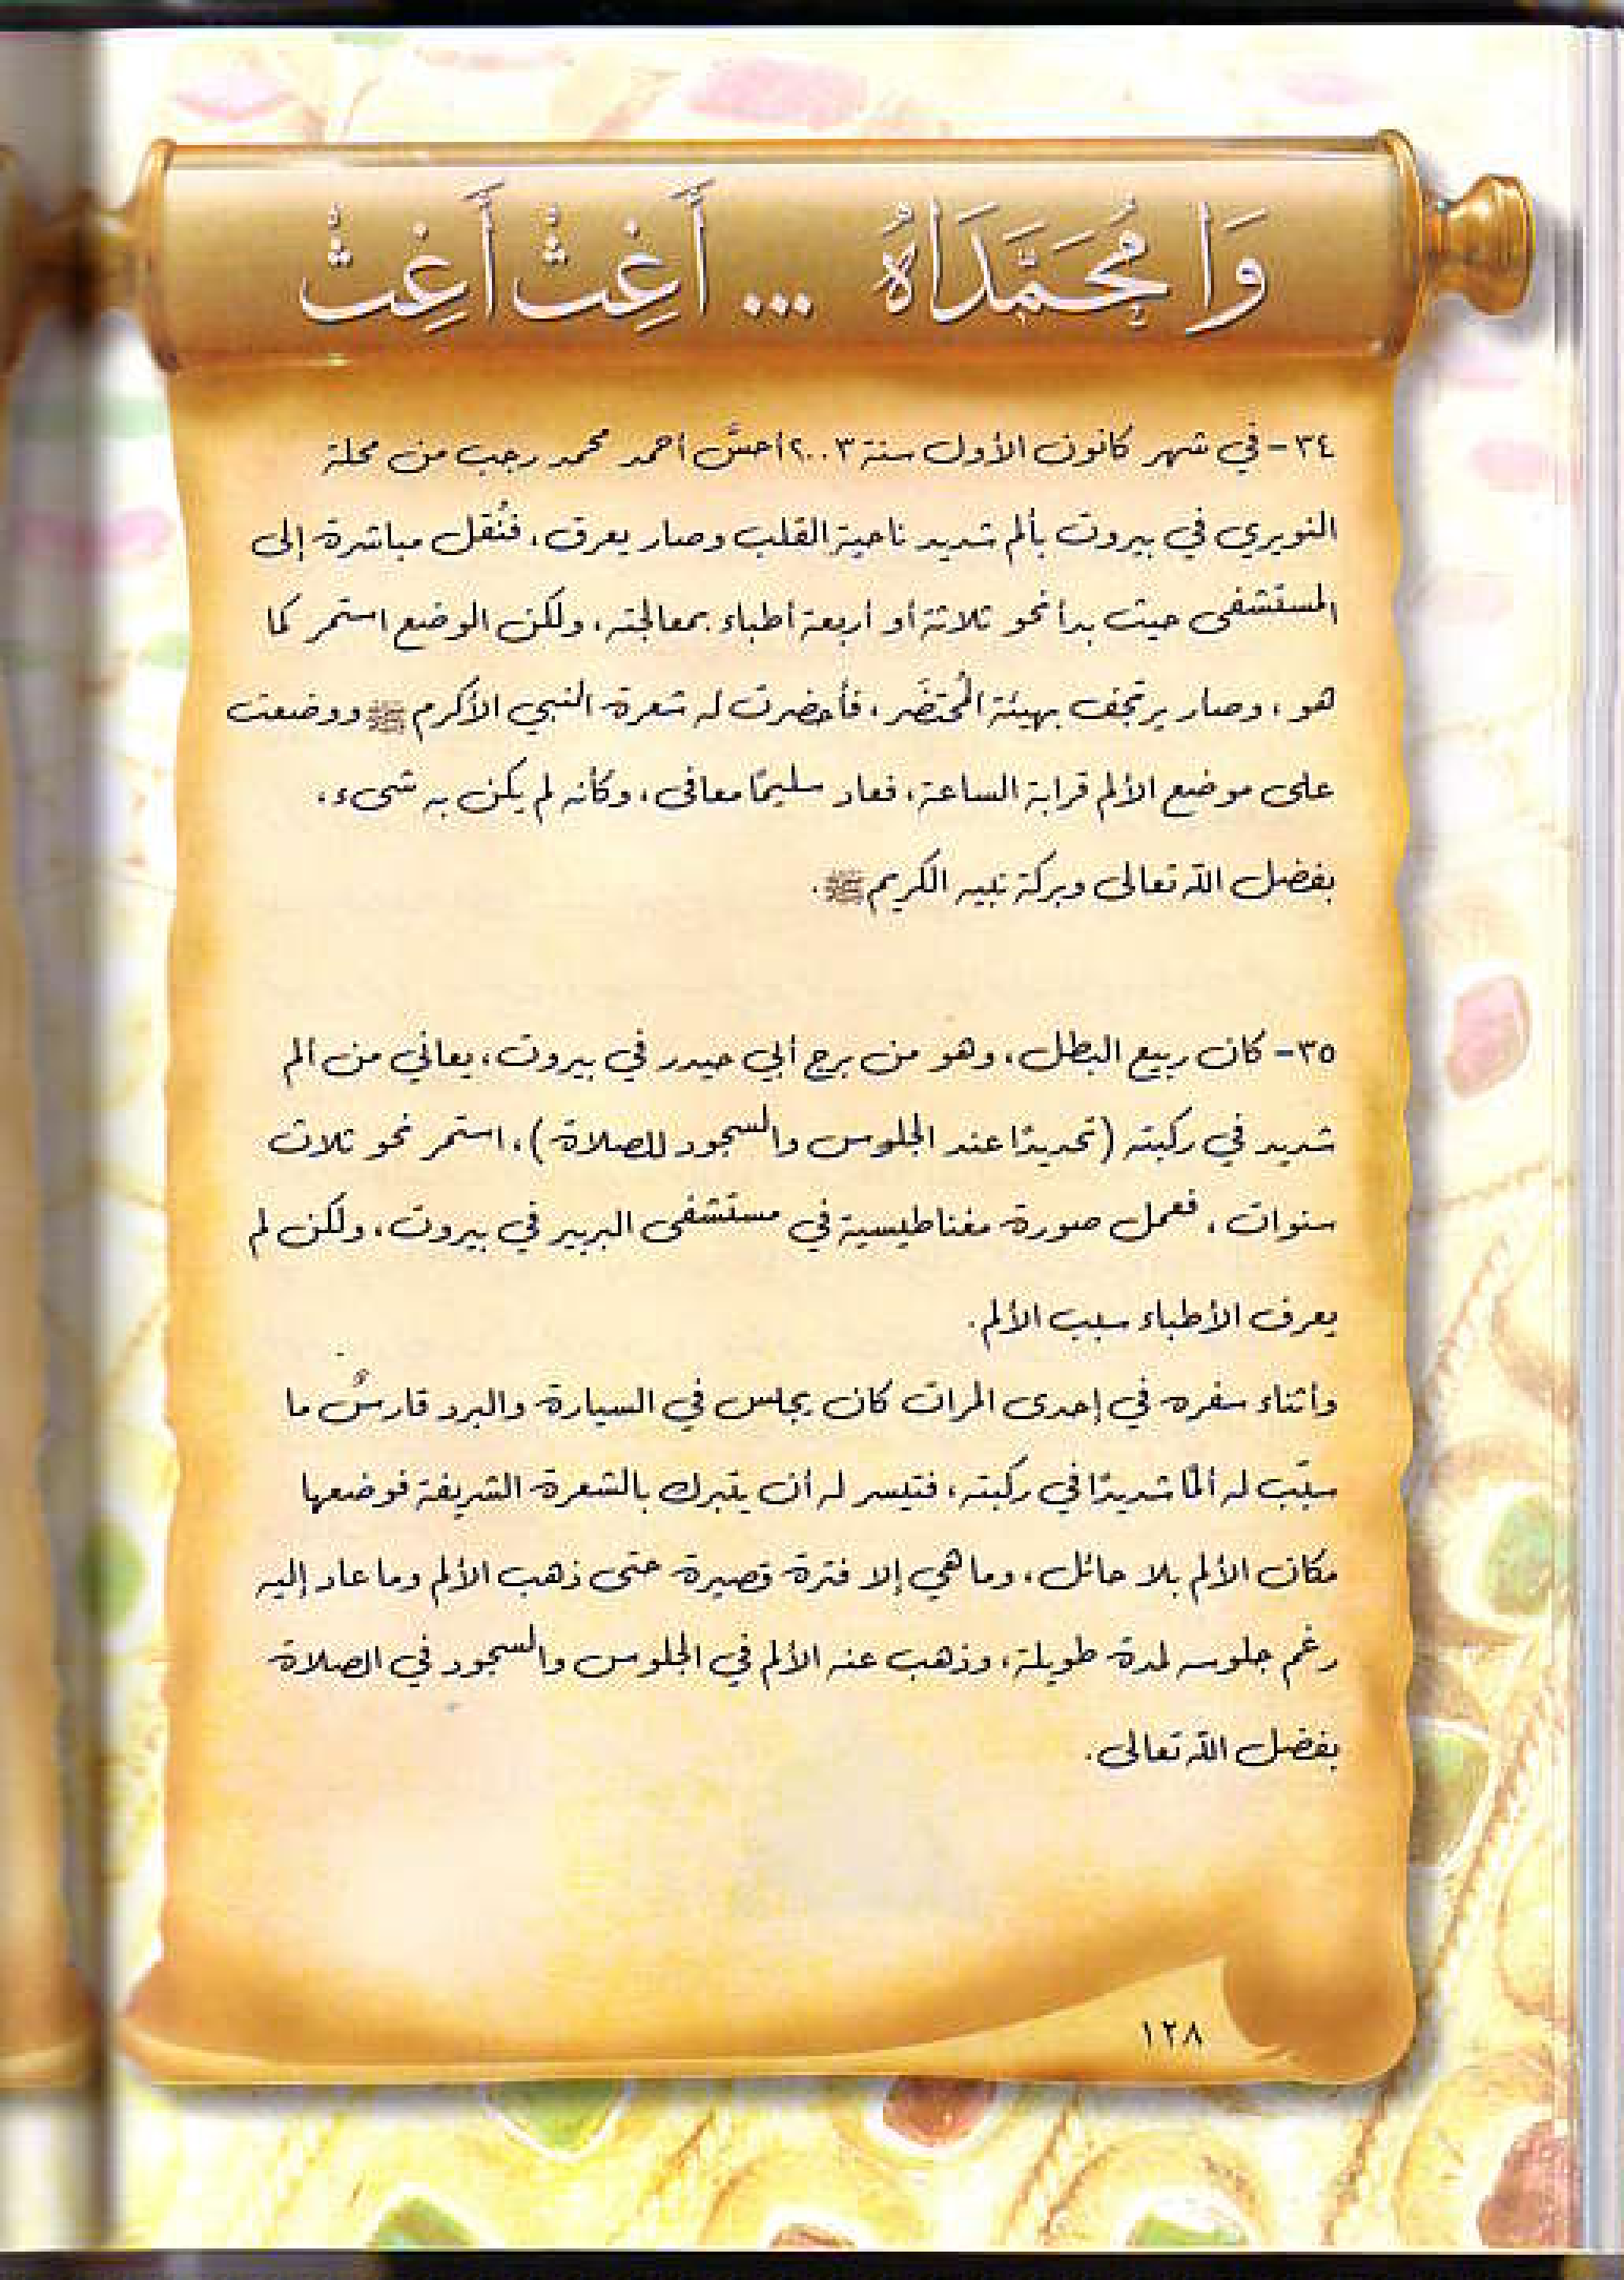 وَا مُحَمَّدَاهُ ... أَغِثْ أَغِثْ
٣٤- في شهر كانون الأول سنة ٢٠٠٣ أحسَّ أحمد محمد رجب من محلة
النويري في بيروت بألم شديد ناحية القلب وصار يعرق، فنُقل مباشرة إلى
المستشفى حيث بدأ نحو ثلاثة أو أربعة أطباء بمعالجته، ولكن الوضع استمر كما
هو، وصار يرتجف بهيئة المُحتضَر، فأحضرت له شعرة النبي الأكرم ﷺ ووضعت
على موضع الألم قرابة الساعة، فعاد سليمًا معافى، وكأنه لم يكن به شىء،
بفضل الله تعالى وبركة نبيه الكريم ﷺ.
٣٥- كان ربيع البطل، وهو من برج أبي حيدر في بيروت، يعاني من ألم
شديد في ركبته (تحديدًا عند الجلوس والسجود للصلاة)، استمر نحو ثلاث
سنوات، فعمل صورة مغناطيسية في مستشفى البربير في بيروت، ولكن لم
يعرف الأطباء سبب الألم.
وأثناء سفره في إحدى المرات كان يجلس في السيارة والبرد قارسٌ ما
سبّب له ألمًا شديدًا في ركبته، فتيسر له أن يتبرك بالشعرة الشريفة فوضعها
مكان الألم بلا حائل، وما هي إلا فترة قصيرة حتى ذهب الألم وما عاد إليه
رغم جلوسه لمدة طويلة، وذهب عنه الألم في الجلوس والسجود في الصلاة
بفضل الله تعالى.
١٢٨